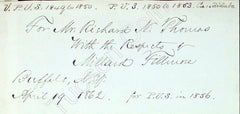 V.P.U.S. 1849 to 1850. P.U.S. 1850 to 1853. Candidate
For Mr. Richard M. Thomas
With the Respects of
Millard Fillmore
Buffalo, N.Y.
April 19 1862. for P.U.S. in 1856.